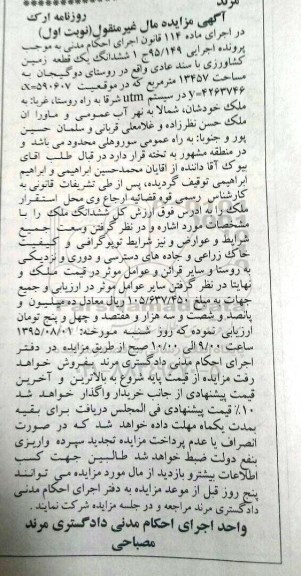 مرند
روزنامه ارک
آگهی مزایده مال غیرمنقول(نوبت اول)
در اجرای ماده ۱۱۴ قانون اجرای احکام مدنی به موجب
پرونده اجرایی ۹۵/۱۴۹ج ۱ ششدانگ یک قطعه زمین
کشاورزی با سند عادی واقع در روستای دوگیجان به
مساحت ۱۳۴۵۷ مترمربع که در موقعیت x=۵۹۰۶۰۷،
y=۴۲۶۳۷۴۶ در سیستم utm شرقا به راه روستا، غربا: به
ملک خودشان، شمالا به نهر آب عمومی و ماورا آن
ملک حسن نظرزاده و غلامعلی قربانی و سلمان حسین
پور و جنوبا: به راه عمومی سوروهلی محدود می باشد و
در منطقه مشهور به تخته قرار دارد در قبال طلب آقای
بیوک آقا داننده از آقایان محمدحسین ابراهیمی و ابراهیم
ابراهیمی توقیف گردیده، پس از طی تشریفات قانونی به
کارشناس رسمی قوه قضائیه ارجاع وی محل استقرار
ملک را به آدرس فوق ارزش کل ششدانگ ملک را با
مشخصات مورد اشاره و در نظر گرفتن وسعت جمیع
شرایط و عوارض و نیز شرایط توپوگرافی و کیفیت
خاک زراعی و جاده های دسترسی و دوری و نزدیکی
به روستا و سایر قرائن و عوامل موثر در قیمت ملک و
نهایتا در نظر گرفتن سایر عوامل موثر در ارزیابی و جمیع
جهات به مبلغ ۱۰۵/۶۳۷/۴۵۰ ریال معادل ده میلیون و
پانصد و شصت و سه هزار و هفتصد و چهل و پنج تومان
ارزیابی نموده که روز شنبه مورخه: ۱۳۹۵/۰۸/۰۱
ساعت ۹/۰۰ الی ۱۰/۰۰ صبح از طریق مزایده در دفتر
اجرای احکام مدنی دادگستری مرند بفروش خواهد
رفت مزایده از قیمت پایه شروع به بالاترین و آخرین
قیمت پیشنهادی از جانب خریدار واگذار خواهد شد
۱۰٪ قیمت پیشنهادی فی المجلس دریافت برای بقیه
بمدت یکماه مهلت داده خواهد شد که در صورت
انصراف یا عدم پرداخت مزایده تجدید سپرده واریزی
بنفع دولت ضبط خواهد شد طالبین جهت کسب
اطلاعات بیشتر و بازدید از مال مورد مزایده می توانند
پنج روز قبل از موعد مزایده به دفتر اجرای احکام مدنی
دادگستری مرند مراجعه و در جلسه مزایده شرکت نمایند.
واحد اجرای احکام مدنی دادگستری مرند
مصباحی